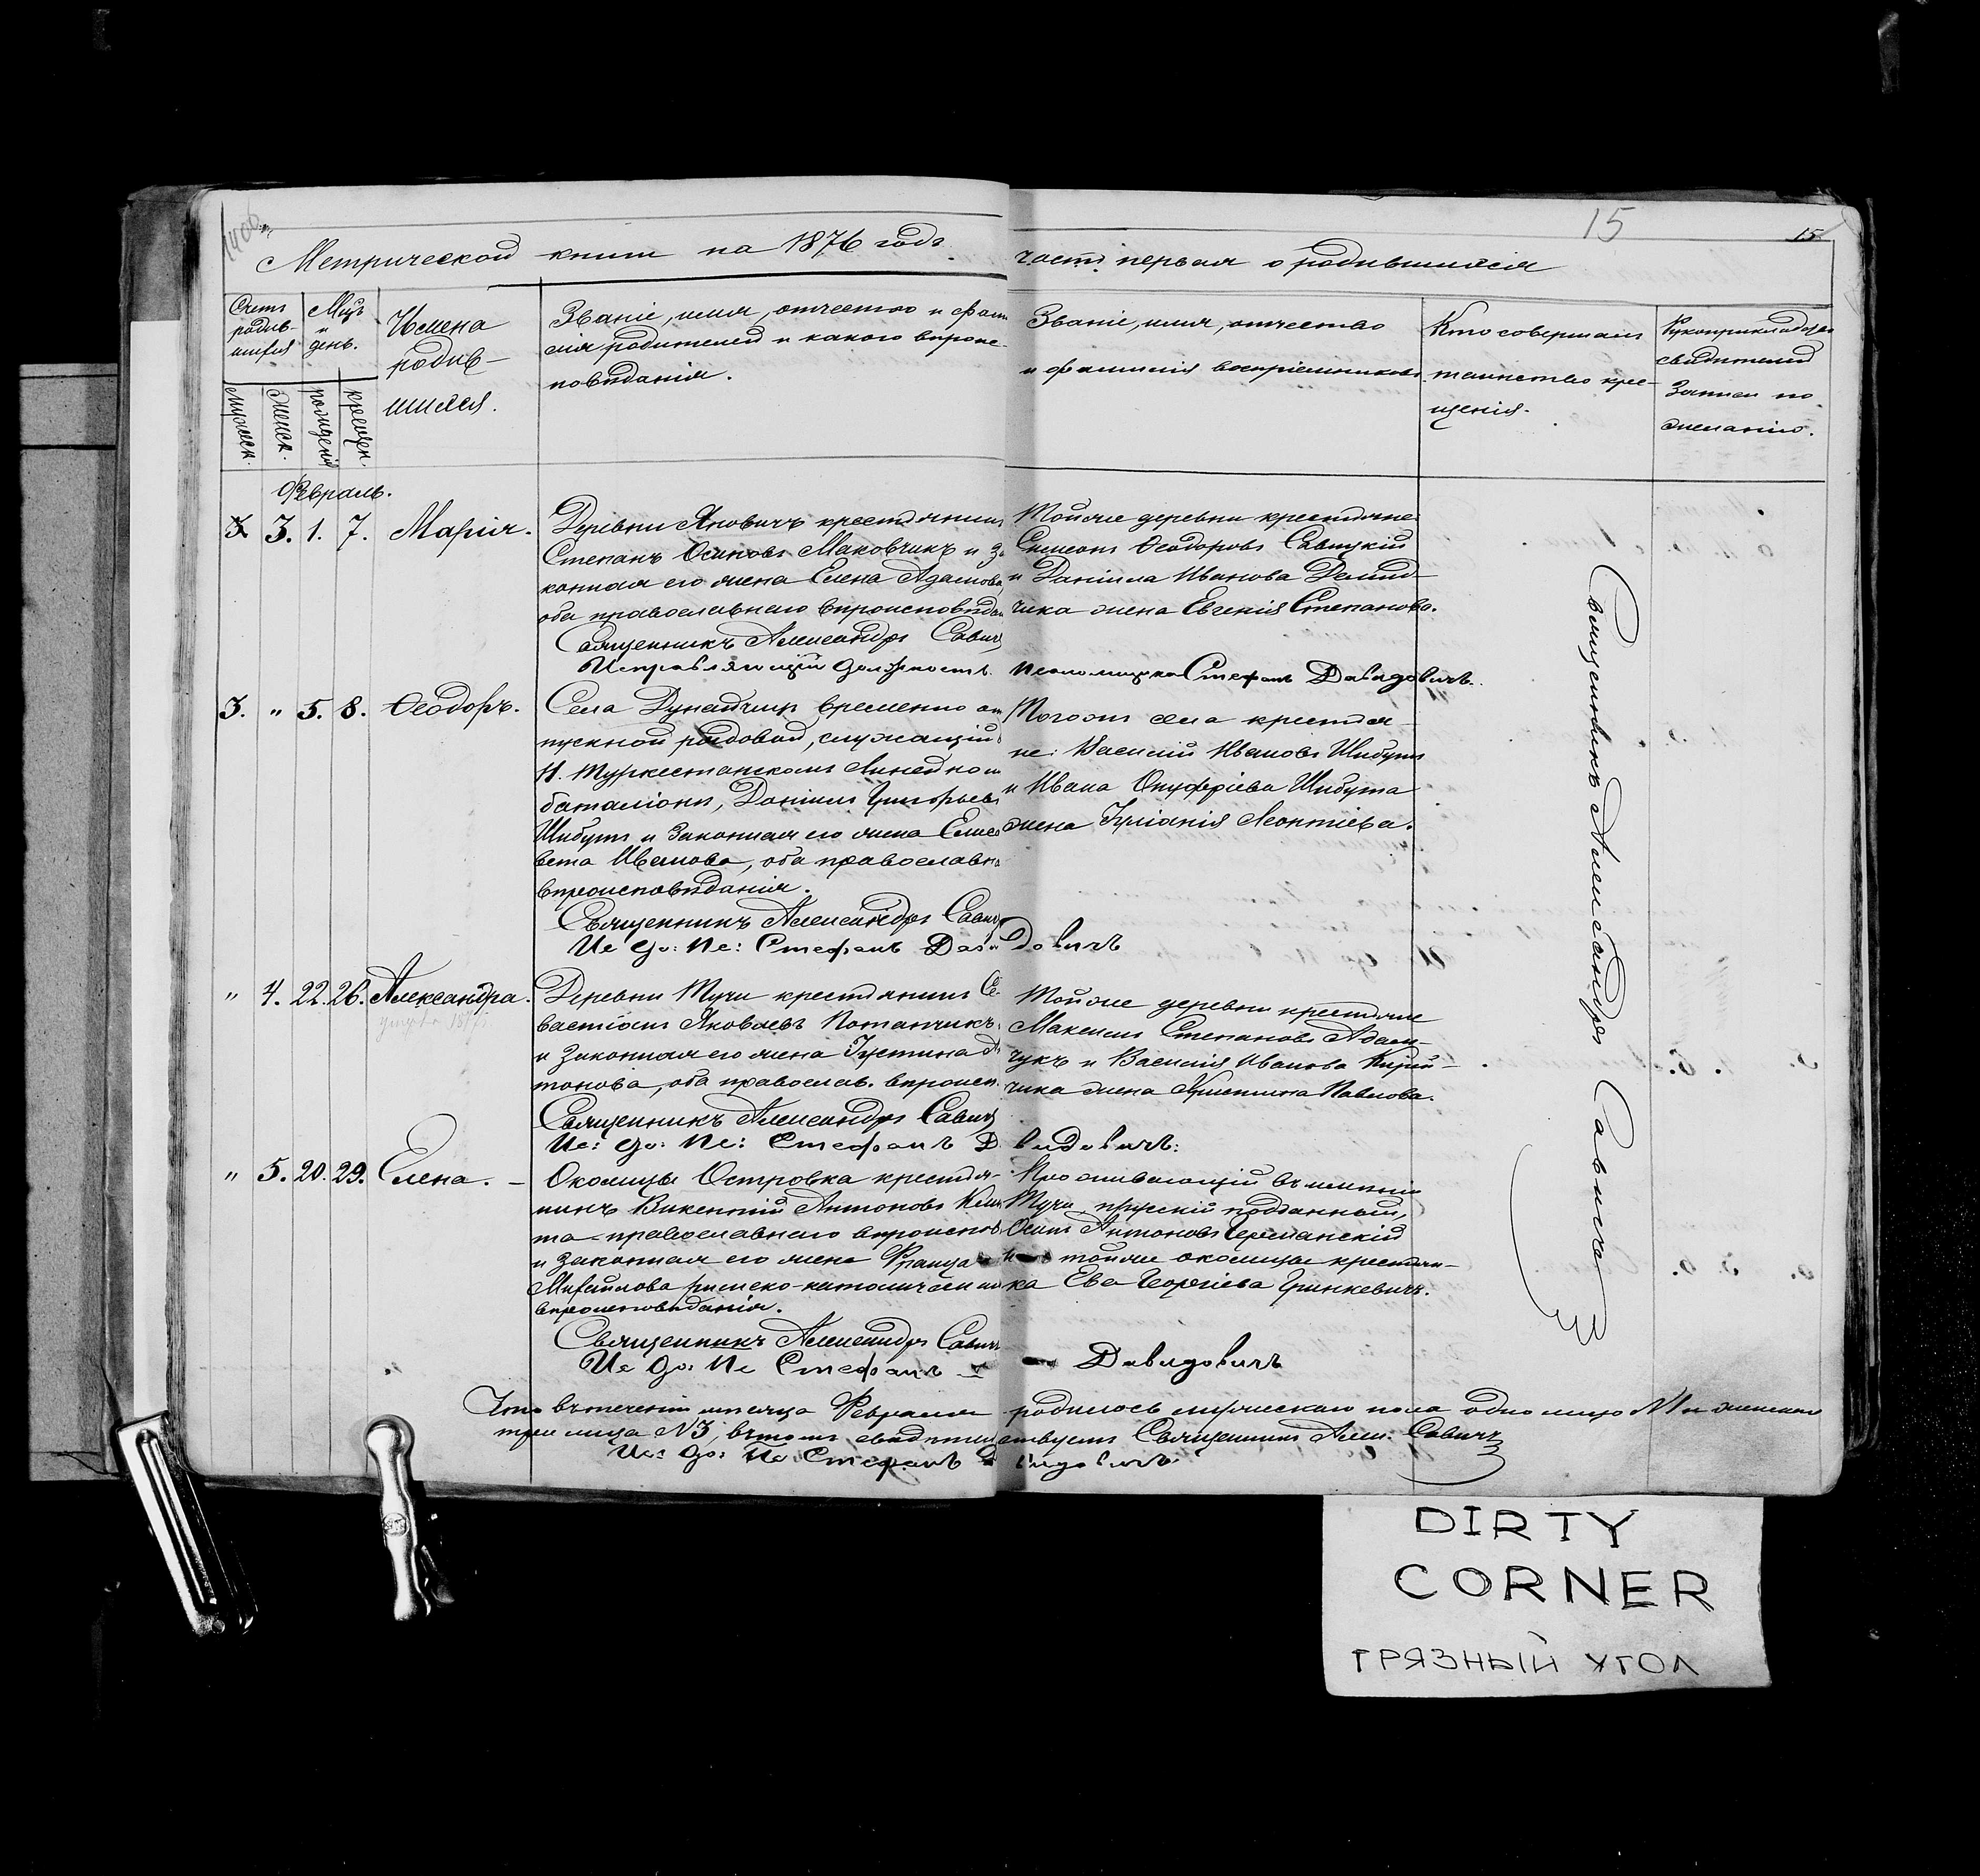 15
15
Метрической книги на 1876 годъ
часть первая о родившихся
Счетъ родив-шихся
Мѣсяцъ и день.
мужеск.
женск.
рожденія
крещен.
Имена
родив-
шихся.
Званіе, имя, отчество и фами
лія родителей и какого вѣроис-
повѣданія.
Званіе, имя, отчество
и фамилія воспріемниковъ
Кто совершалъ
таинство кре-
щенія.
Рукоприкладство
свидѣтелей
записи по
желанію.
Февраль.
3. 1. 7. Марія.
Деревни Яновичъ крестьянинъ
Степанъ Осиповъ Маковчикъ и за
конная его жена Елена Адамова,
оба православнаго вѣроисповѣдан
Священникъ Александръ Савич
Исправляющій должность
Тойже деревни крестьяне
Симеонъ Ѳеодоровъ Савицкій
и Даніила Иванова Демид-
чика жена Евгенія Степанова.
псаломщика Стефанъ Давидовичъ.
3. " 5. 8. Ѳеодоръ.
Села временно от
пускной рядовой, служащій
11. Туркестанскомъ Линейном
баталіонѣ, Даніилъ Григорьевъ
Шибутъ и законная его жена Елиса
вета Иванова, оба православн
вѣроисповѣданія.
Священникъ Александръ Савич
Ис: до: Пс: Стефанъ Дави
Тогоже села крестья-
не: Василій Ивановъ Шибутъ
и Ивана Онуфріева Шибута
жена Іуліанія Леонтіева.
довичъ
" 4. 22. 26. Александра.
Деревни Тучи крестьянинъ Се-
вастіанъ Яковлевъ Потапчикъ
и законная его жена Іустина Ан
тонова, оба православ. вѣроисп.
Священникъ Александръ Савич
Ис: до: Пс: Стефанъ Д
Тойже деревни крестьяне
Максимъ Степановъ Адам-
чукъ и Василія Иванова
чика жена Христина Павлова.
видовичъ:
" 5. 20. 29. Елена. -
Околицы Островка крестья-
нинъ Викентій Антоновъ
та - православнаго вѣроиспов
и законная его жена Франца
Михайлова римско-католическ
вѣроисповѣданія.
Священникъ Александръ Савич
Ис: до: Пс Стефанъ
Проживающій въ имѣніи
Тучи, прусскій подданный,
Осипъ Антоновъ
и тойже околицы крестьян-
ка Ева Георгіева Гринкевичъ.
Давидовичъ
Священникъ Александръ Савичъ
Что въ теченіи мѣсяца Февраля родилось мужескаго пола одно лицо №1 и женскаго
три лица №3, въ томъ свидѣтельствуетъ Священникъ Алек. Савичъ
Ис: до: Пс Стефанъ Давидовичъ
DIRTY
CORNER
ГРЯЗНЫЙ УГОЛ